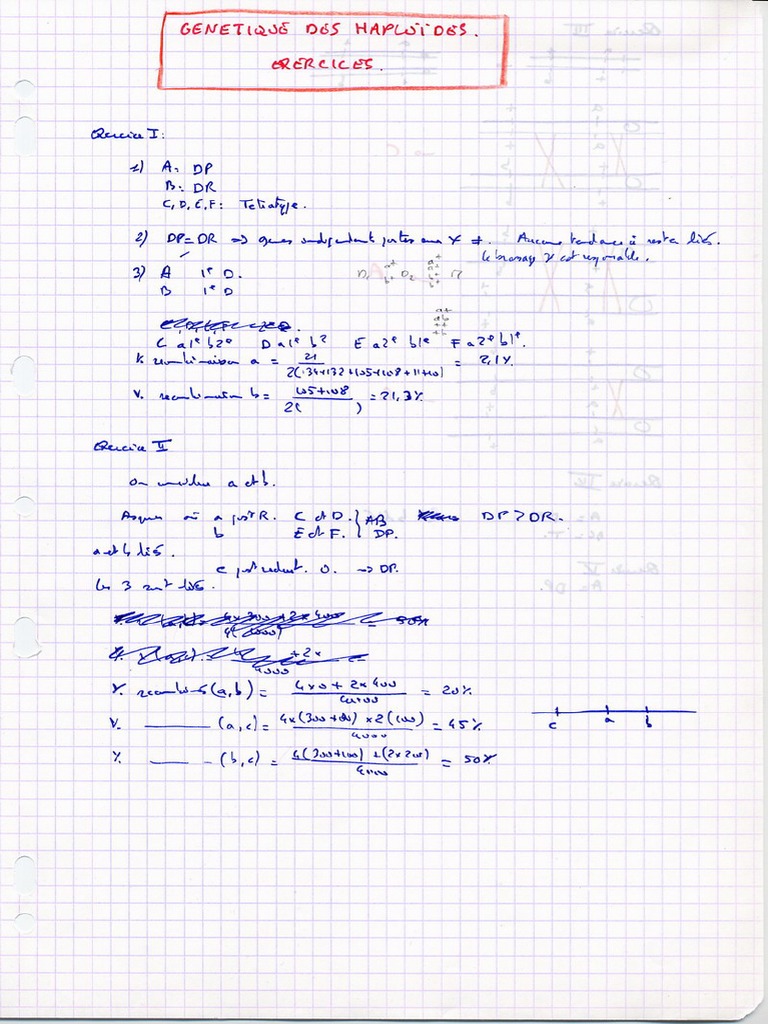 GENETIQUE DES HAPLOÏDES.
EXERCICES.
Exercice I:
1) A: DP
B: DR
C, D, E, F: Tetratype.
2) DP=DR => genes independants portés sur ≠. Aucune tendance à rester liés.
le brassage est responsable.
3) A 1e D.
B 1e D
C a1e b2e D a1e b2 E a2e b1e F a2e b1e.
% recombinaison a = 21 / 2( 134+132+105+108+11+10) = 2,1%
% recombinaison b = 105+108 / 2( ) = 21,3%
Exercice II
a et b.
Asques où a post R. C et D. } AB DP > DR.
b E et F. } DP.
a et b liés.
c postreduct. 0. -> DP.
les 3 sont liés.
% recombinés (a,b) = 4x0 + 2x400 / 4000 = 20%
% ——— (a,c) = / 4000 = 45%
% ——— (b,c) = 4(300+100) + (2x200) / 4000 = 50%
c a b